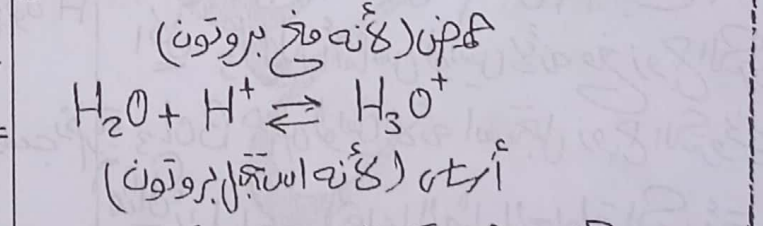 حمض (لأنه منح بروتون)
H₂O + H⁺ ⇌ H₃O⁺
أساس (لأنه استقبل بروتون)